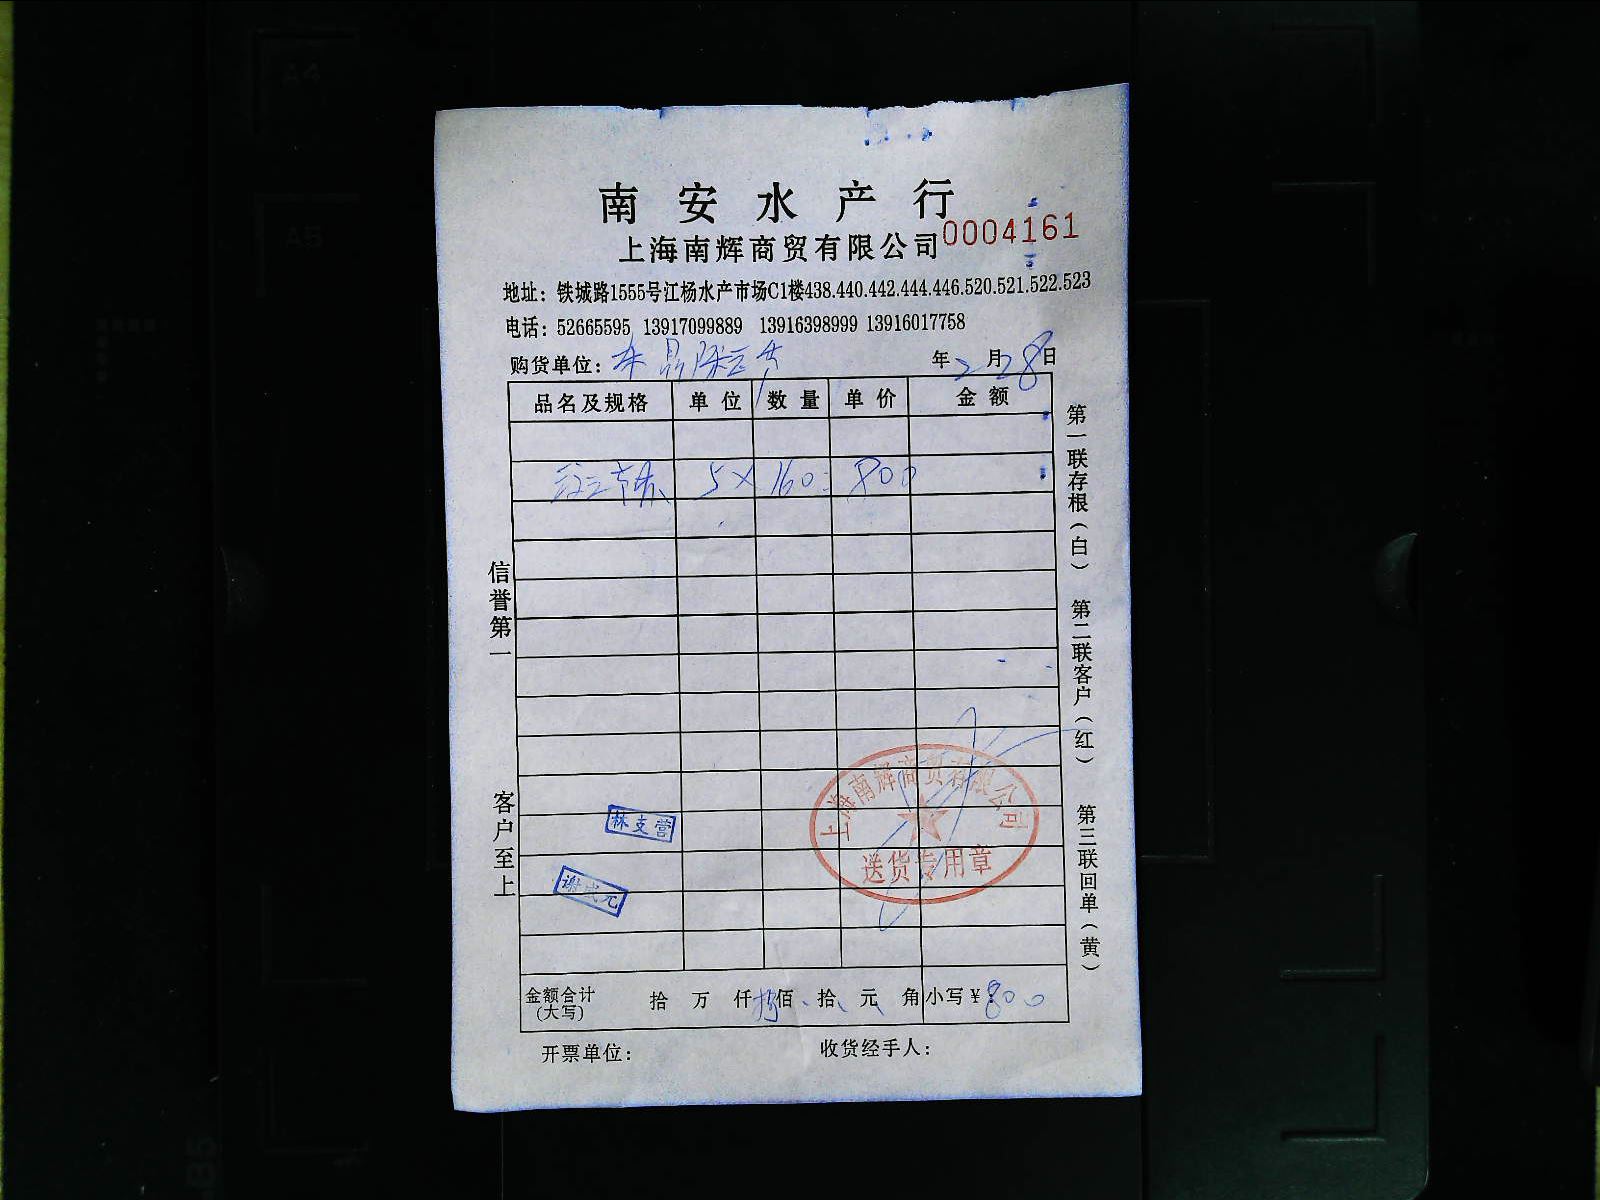 南安水产行
上海南辉商贸有限公司 0004161
地址：铁城路1555号江杨水产市场C1楼438.440.442.444.446.520.521.522.523
电话：52665595 13917099889 13916398999 13916017758
购货单位： 年2月28日
品名及规格 单位 数量 单价 金额
5×160=800
信誉第一
客户至上
第一联存根（白）
第二联客户（红）
第三联回单（黄）
林支营
谢成元
上海南辉商贸有限公司
送货专用章
金额合计（大写） 拾 万 仟 捌佰 拾 元 角 小写￥：800
开票单位： 收货经手人：
A4
A5
B5